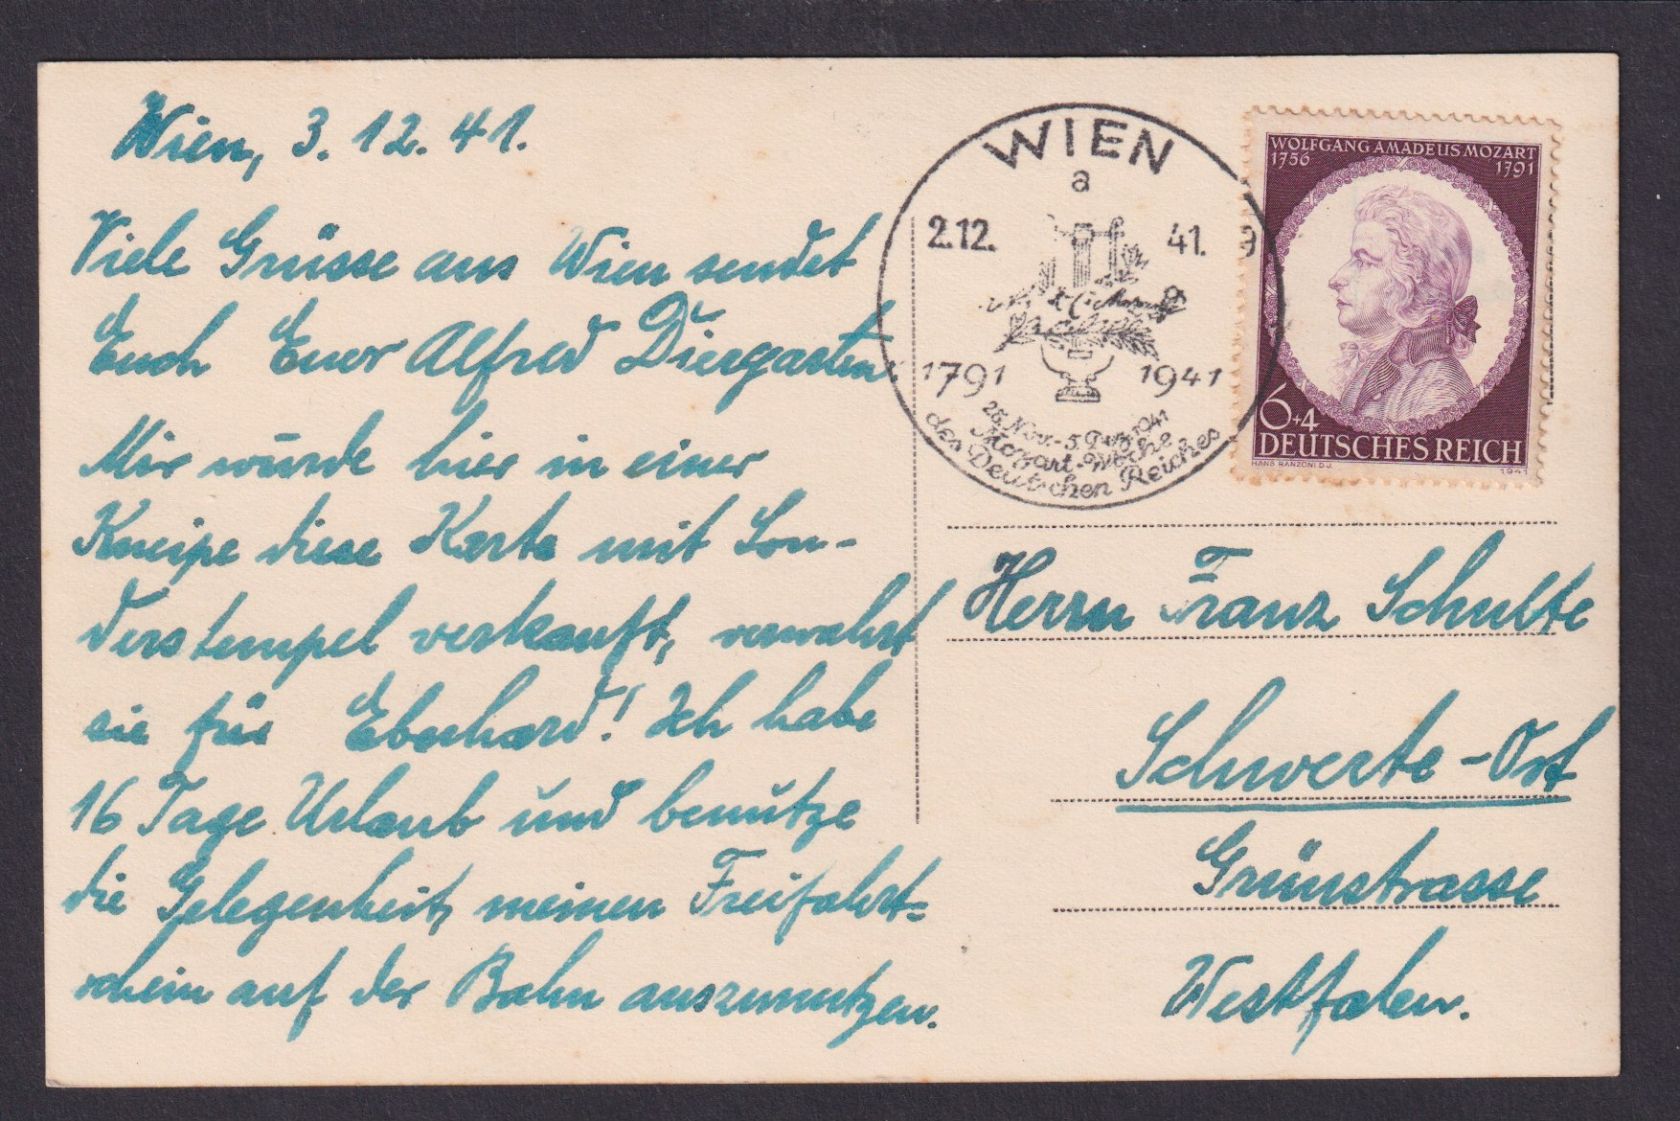 Wien, 3. 12. 41.
Viele Grüsse aus Wien sendet
Euch Euer Alfred Diergarten
Mir wurde hier in einer
Kneipe diese Karte mit Son-
derstempel verkauft, verwahrt
sie für Eberhard! Ich habe
16 Tage Urlaub und benutze
die Gelegenheit, meinen Freifahrt=
schein auf der Bahn auszunutzen.
WIEN
a
2.12. 41. 9
1791 1941
28. Nov.-5. Dez. 1941
Mozart-Woche
des Deutschen Reiches
WOLFGANG AMADEUS MOZART
1756 1791
6+4
DEUTSCHES REICH
HANS RANZONI D.J. 1941
Herrn Franz Schulte
Schwerte-Ost
Grünstrasse
Westfalen.